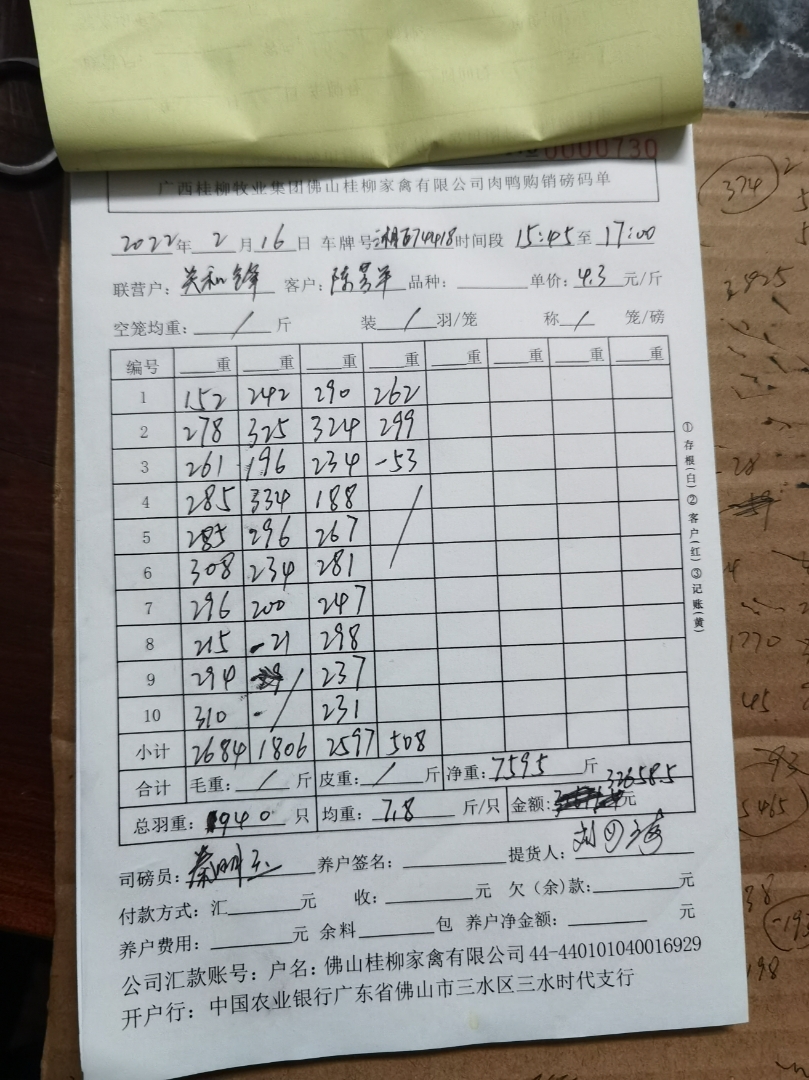 0000730
广西桂柳牧业集团佛山桂柳家禽有限公司肉鸭购销磅码单
2022年 2月16日 车牌号 时间段 15:45至17:00
联营户: 客户: 品种: 单价:4.3元/斤
空笼均重: / 斤 装 / 羽/笼 称 / 笼/磅
编号 重 重 重 重 重 重 重 重
1 152 242 290 262
2 278 325 324 299
3 261 196 234 -53
4 285 334 188
5 285 296 267
6 308 234 281
7 296 200 247
8 215 -21 298
9 294 237
10 310 - 231
小计 2684 1806 2597 508
合计 毛重: / 斤 皮重: / 斤 净重:7595 斤
总羽重: 940 只 均重: 7.8 斤/只 金额: 32658.5 元
司磅员: 养户签名: 提货人:
付款方式:汇 元 收: 元 欠(余)款: 元
养户费用: 元 余料 包 养户净金额: 元
公司汇款账号:户名:佛山桂柳家禽有限公司 44-440101040016929
开户行:中国农业银行广东省佛山市三水区三水时代支行
①存根(白)②客户(红)③记账(黄)
374